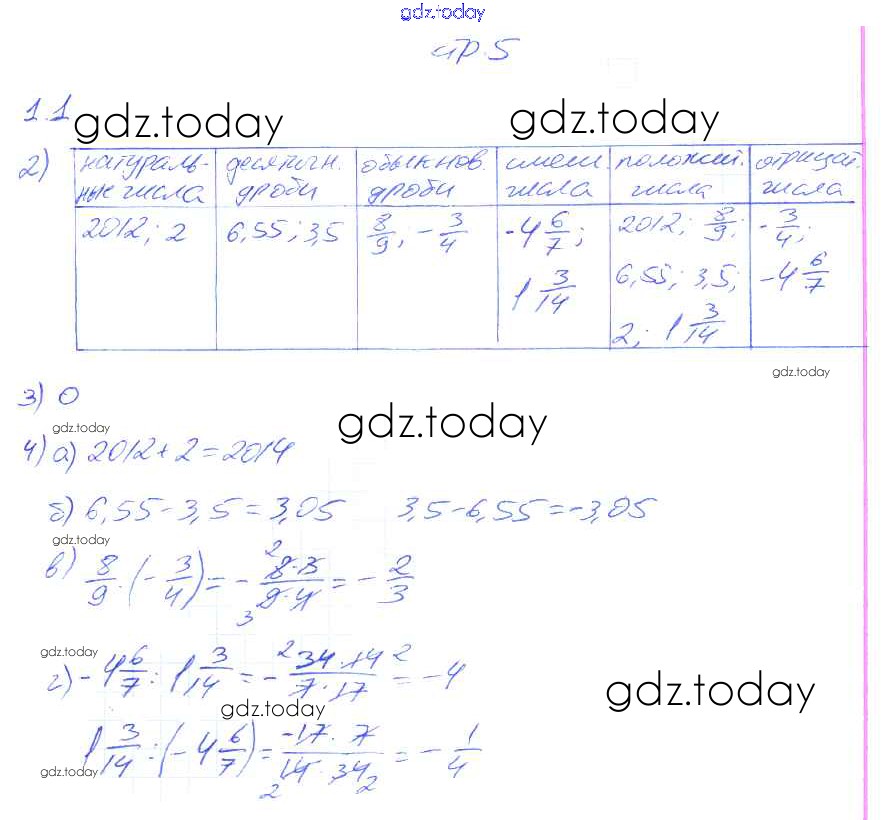 gdz.today
стр. 5
1.1
gdz.today gdz.today
2) натураль-ные числа | десятичн. дроби | обыкнов. дроби | смеш. числа | положит. числа | отрицат. числа
2012; 2 | 6,55; 3,5 | 8/9; -3/4 | -4 6/7; 1 3/14 | 2012; 8/9; 6,55; 3,5; 2; 1 3/14 | -3/4; -4 6/7
gdz.today
3) 0
gdz.today gdz.today
4) а) 2012 + 2 = 2014
б) 6,55 - 3,5 = 3,05 3,5 - 6,55 = -3,05
gdz.today
в) 8/9 · (-3/4) = - 2 8·3 / 3 9·4 = - 2/3
gdz.today
г) -4 6/7 : 1 3/14 = - 2 34·14 2 / 7·17 = -4
gdz.today
gdz.today
1 3/14 : (-4 6/7) = -17·7 / 2 14·34 2 = - 1/4
gdz.today